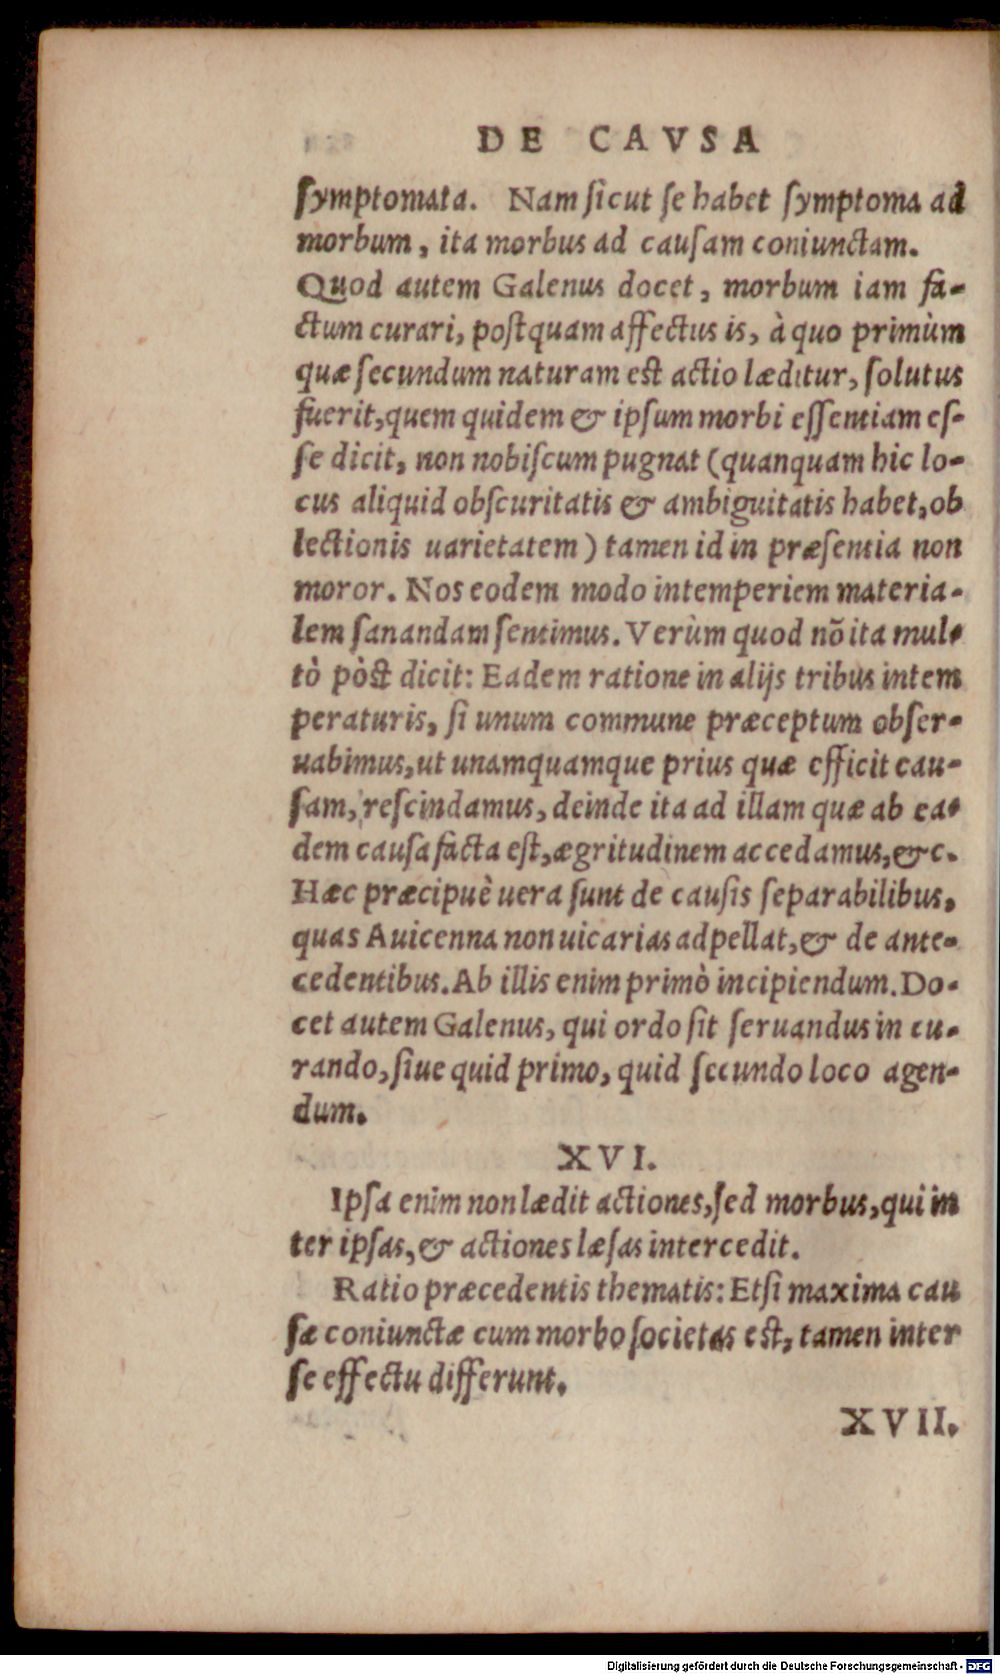 DE CAVSA
ſymptomata. Nam ſicut ſe habet ſymptoma ad
morbum, ita morbus ad cauſam coniunctam.
Quod autem Galenus docet, morbum iam fa-
ctum curari, poſtquam affectus is, à quo primùm
quæ ſecundum naturam est actio læditur, ſolutus
fuerit, quem quidem & ipſum morbi eſſentiam eſ-
ſe dicit, non nobiſcum pugnat (quanquam hic lo-
cus aliquid obſcuritatis & ambiguitatis habet, ob
lectionis uarietatem) tamen id in præſentia non
moror. Nos eodem modo intemperiem materia-
lem ſanandam ſentimus. Verùm quod nõ ita mul-
tò pòst dicit: Eadem ratione in alijs tribus intem
peraturis, ſi unum commune præceptum obſer-
uabimus, ut unamquamque prius quæ efficit cau-
ſam, reſcindamus, deinde ita ad illam quæ ab ea-
dem cauſa facta eſt, ægritudinem accedamus, &c.
Hæc præcipuè uera ſunt de cauſis ſeparabilibus,
quas Auicenna non uicarias adpellat, & de ante-
cedentibus. Ab illis enim primò incipiendum. Do-
cet autem Galenus, qui ordo ſit ſeruandus in cu-
rando, ſiue quid primo, quid ſecundo loco agen-
dum.
XVI.
Ipſa enim non lædit actiones, ſed morbus, qui in
ter ipſas, & actiones læſas intercedit.
Ratio præcedentis thematis: Etſi maxima cau
ſæ coniunctæ cum morbo ſocietas est, tamen inter
ſe effectu differunt.
XVII.
Digitalisierung gefördert durch die Deutsche Forschungsgemeinschaft - DFG